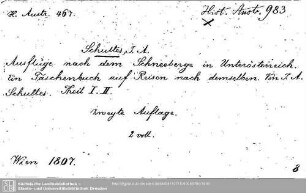 H. Austr. 467.
Hist. Austr. 983
x
Schultes, J. A.
Ausflüge nach dem Schneeberge in Unterösterreich.
Ein Taschenbuch auf Reisen nach demselben. Von J. A.
Schultes. Theil I. II.
Zweyte Auflage.
2 voll.
Wien 1807.
8